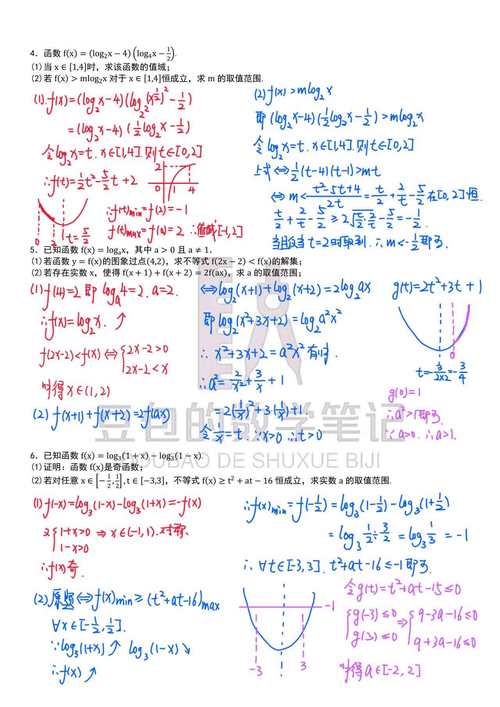 4. 函数 f(x) = (log₂x − 4)(log₄x − 1/2).
(1) 当 x ∈ [1,4]时, 求该函数的值域;
(2) 若 f(x) > mlog₂x 对于 x ∈ [1,4]恒成立, 求 m 的取值范围.
(1) f(x) = (log₂x−4)(log₂(x^(1/2))² − 1/2)
= (log₂x−4)(1/2 log₂x − 1/2)
令log₂x=t. x∈[1,4]. 则t∈[0,2]
∴f(t)= 1/2 t² − 5/2 t + 2
t=5/2
∴f(t)min = f(2) = −1
f(t)max = f(0) = 2 ∴值域[−1,2]
(2) f(x) > mlog₂x
即 (log₂x−4)(1/2 log₂x − 1/2) > mlog₂x
令log₂x=t. x∈[1,4]. 则t∈[0,2]
上式⇔ 1/2 (t−4)(t−1) > mt
⇔ m < (t²−5t+4)/2t = t/2 + 2/t − 5/2 在[0,2]恒.
t/2 + 2/t − 5/2 ≥ 2√(t/2·2/t) − 5/2 = −1/2.
当且仅当t=2时取到. ∴m<−1/2 即可
5. 已知函数 f(x) = logₐx, 其中 a > 0 且 a ≠ 1.
(1) 若函数 y = f(x)的图象过点(4,2), 求不等式 f(2x − 2) < f(x)的解集;
(2) 若存在实数 x, 使得 f(x + 1) + f(x + 2) = 2f(ax), 求 a 的取值范围;
(1) f(4)=2 即 logₐ4=2. a=2.
∴f(x)=log₂x. ↑
f(2x−2)<f(x) ⇔ { 2x−2>0
2x−2<x
解得 x∈(1,2)
(2) f(x+1)+f(x+2)=2f(ax)
⇔log₂(x+1)+log₂(x+2)=2log₂ax
即log₂(x²+3x+2)=log₂a²x²
∴ x²+3x+2=a²x² 有解.
∴a²= 2/x² + 3/x + 1
= 2(1/x)²+3(1/x)+1.
令1/x=t. ∵x>0 ∴t>0
g(t)=2t²+3t+1
0
t=−3/(2×2)=−3/4
g(0)=1
∴a²>1即可.
∵a>0. ∴a>1.
豆包的数学笔记
DOUBAO DE SHUXUE BIJI
6. 已知函数 f(x) = log₃(1 + x) − log₃(1 − x).
(1) 证明: 函数 f(x)是奇函数;
(2) 若对任意 x ∈ [−1/2, 1/2], t ∈ [−3,3], 不等式 f(x) ≥ t² + at − 16 恒成立, 求实数 a 的取值范围.
(1) f(−x)=log₃(1−x)−log₃(1+x)=−f(x)
又{ 1+x>0
1−x>0 ⇒ x∈(−1,1). 对称
∴f(x)奇
(2) 原题⇔f(x)min ≥ (t²+at−16)max
∀x∈[−1/2,1/2].
∵log₃(1+x)↑ log₃(1−x)↘
∴f(x)↗
∴f(x)min = f(−1/2) = log₃(1−1/2) − log₃(1+1/2)
= log₃ 1/2 ÷ 3/2 = log₃ 1/3 = −1
∴ ∀t∈[−3,3]. t²+at−16 ≤ −1 即可
−1
−3 3
令g(t)=t²+at−15≤0
{ g(−3)≤0
g(3)≤0 ⇒ { 9−3a−16≤0
9+3a−16≤0
解得a∈[−2,2]